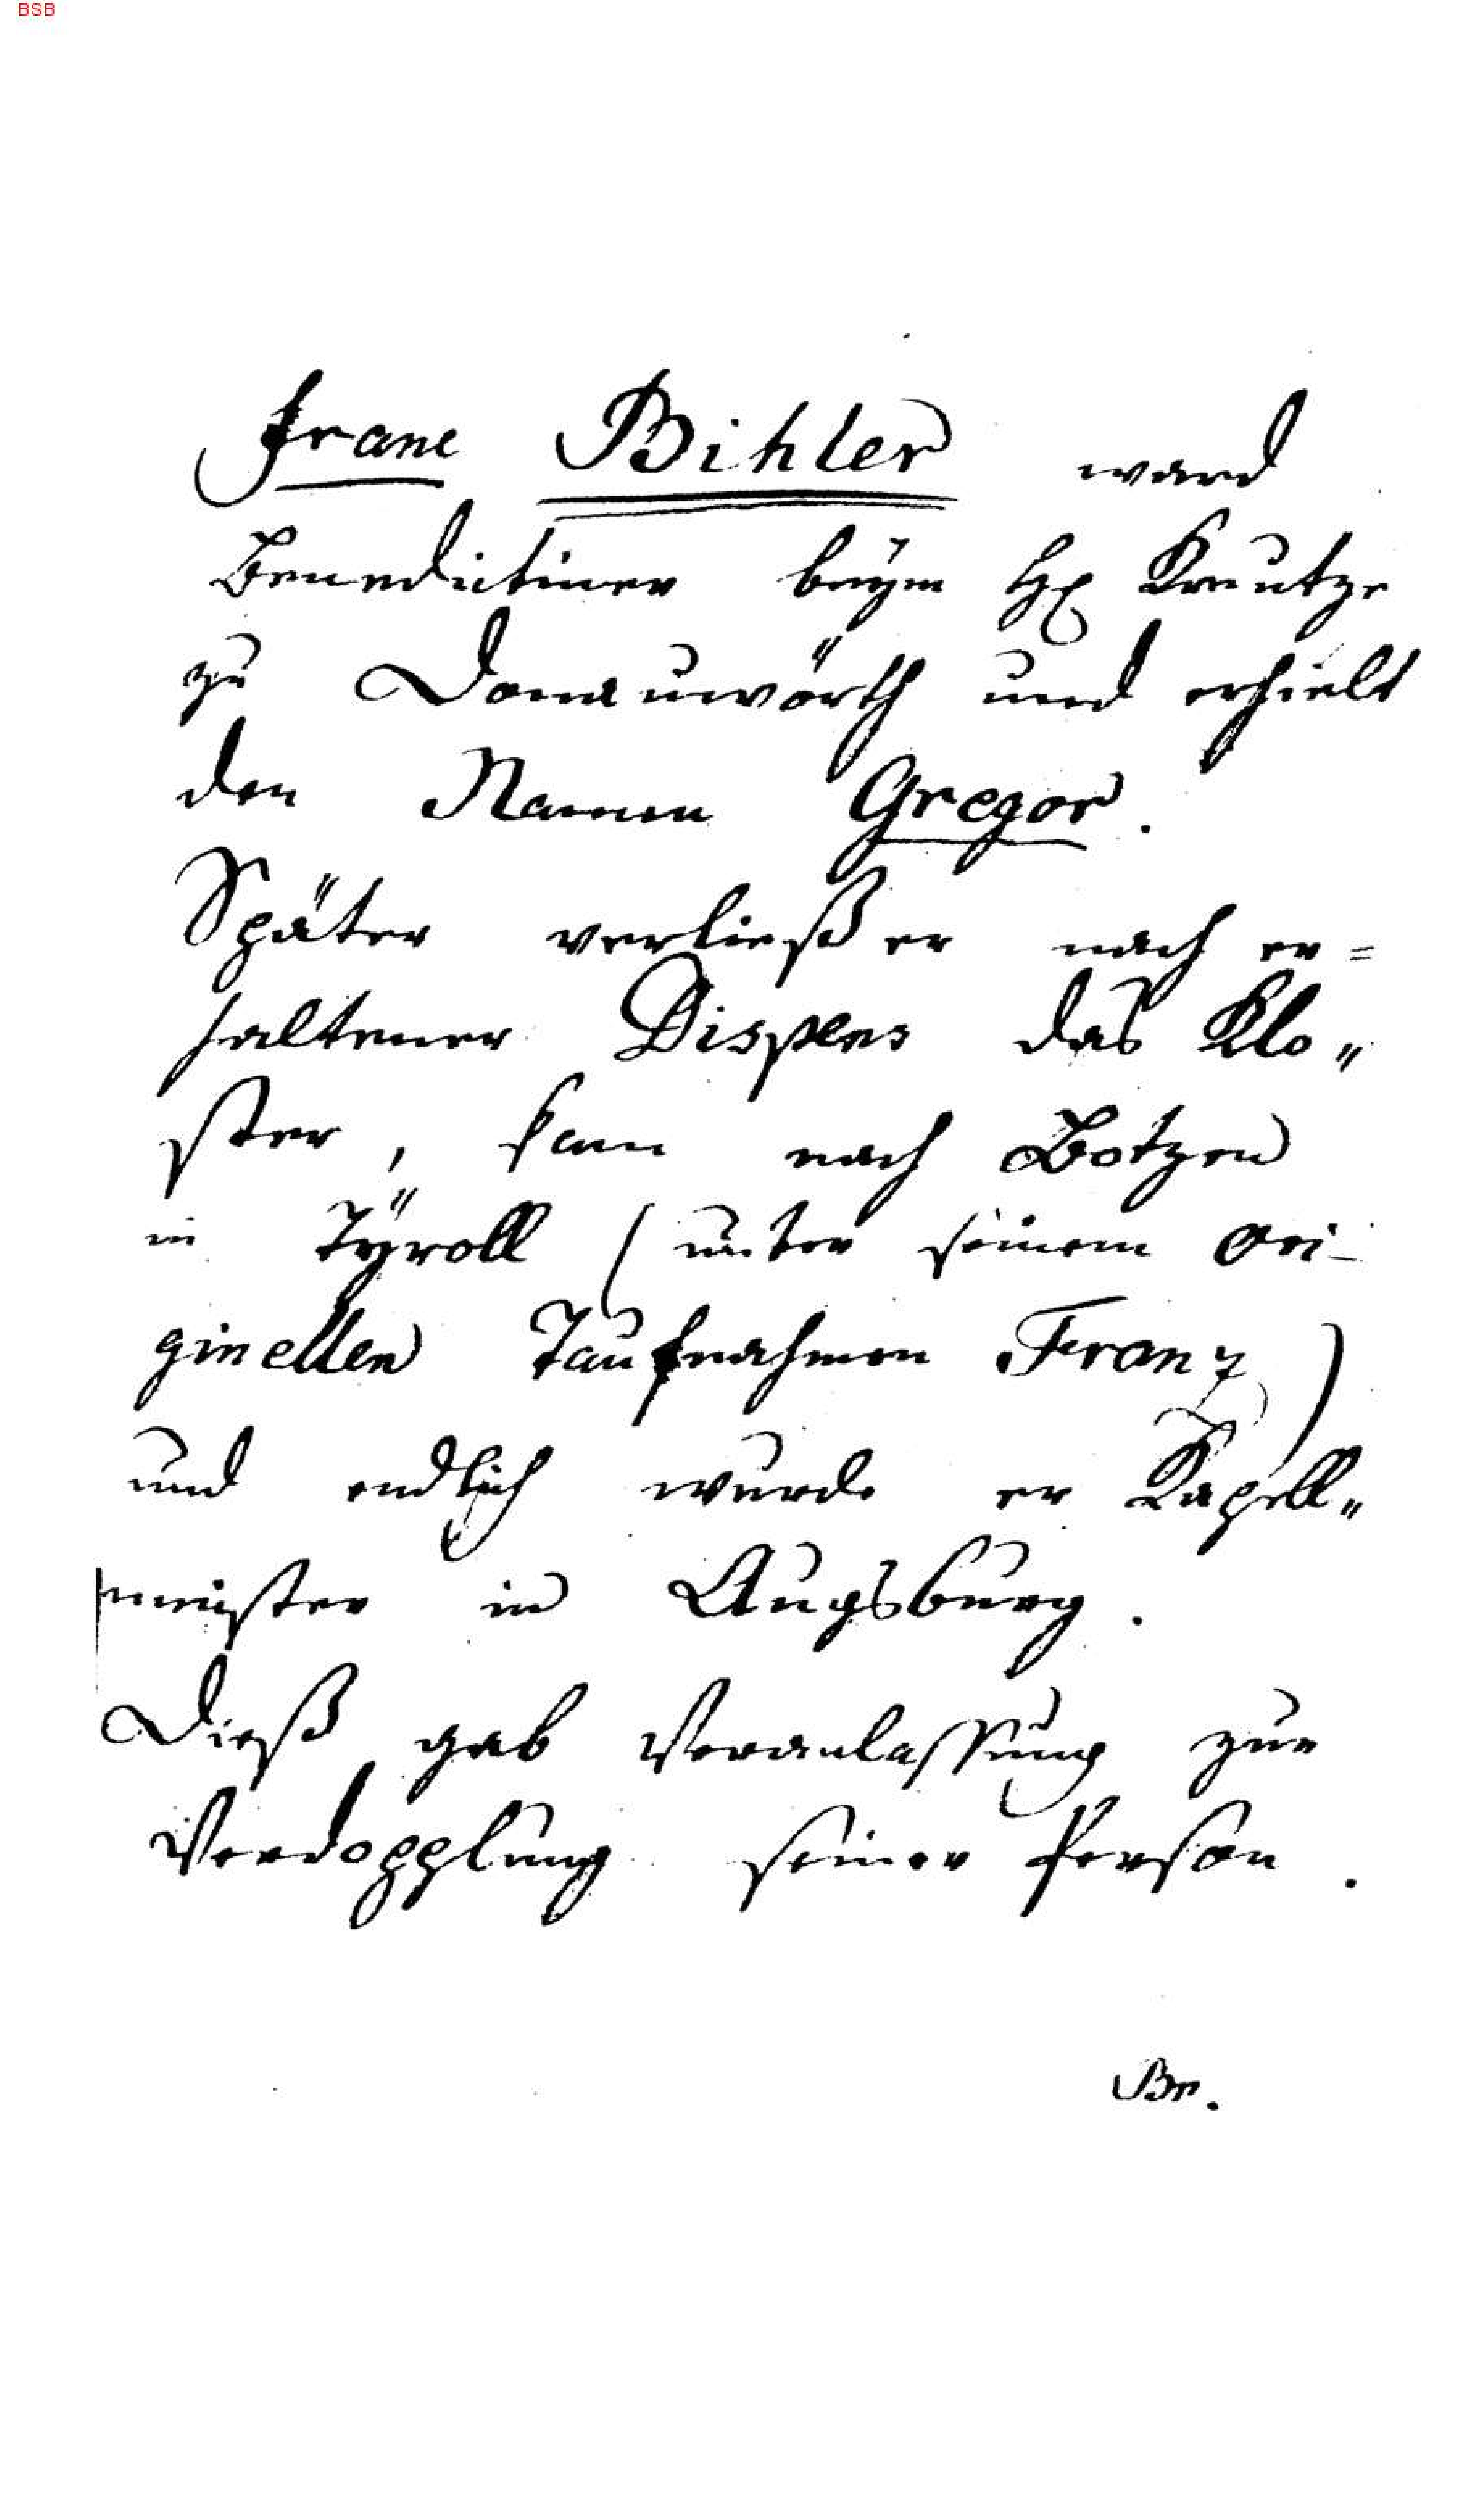 BSB
Franc Bihler ward
Benedictiner beÿm Hl Kreutze
zu Donauwörth und erhielt
den Namen Gregor.
Später verließ er nach er=
haltener Dispens das Klo„
ster, kam nach Botzen
in Tÿroll (unter seinem ori-
ginellen Taufnahmen Franz)
und endlich wurde er Kapell„
meister in Augsburg.
Dieß gab Veranlassung zur
Verdopplung seiner Person.
Br.